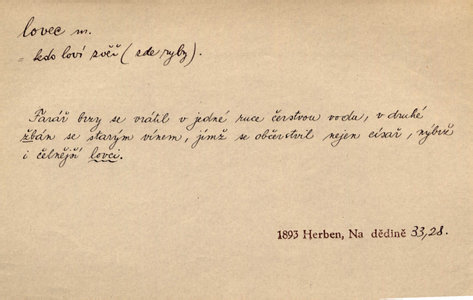 lovec m.
= kdo loví zvěř (zde ryby).
Farář brzy se vrátil v jedné ruce čerstvou vodu, v druhé
žbán se starým vínem, jímž se občerstvil nejen císař, nýbrž
i čelnější lovci.
1893 Herben, Na dědině 33,28.